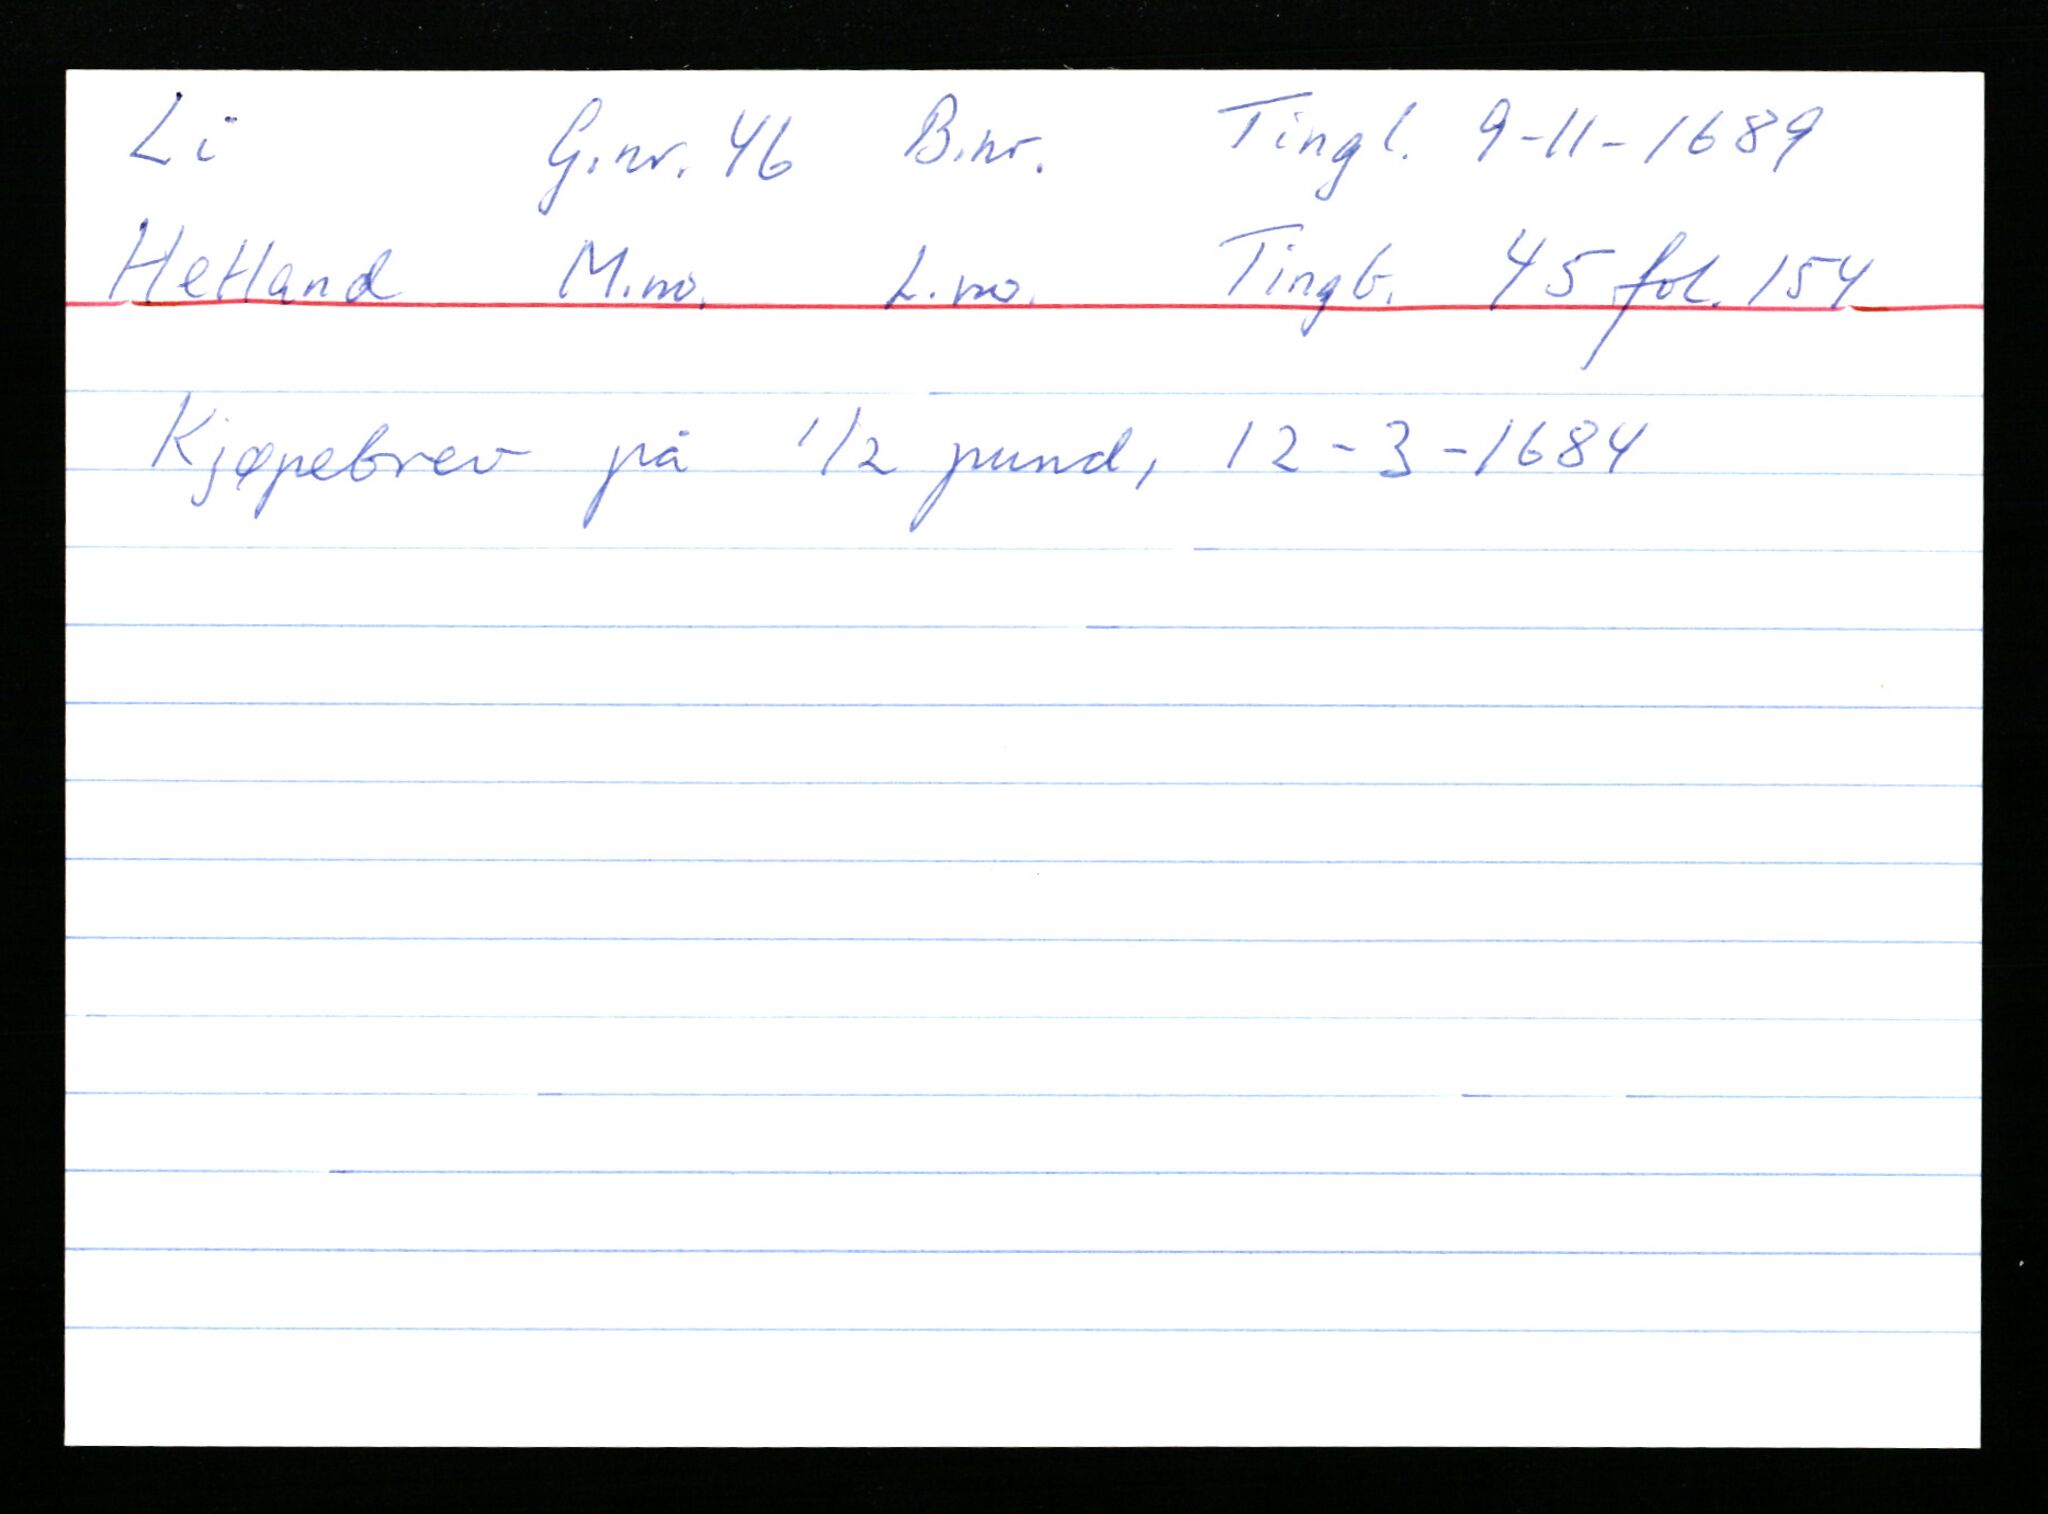 Li G.nr. 46 B.nr. Tingl. 9-11-1689
Hetland M.no. L.no. Tingb. 45 fol. 154
Kjøpebrev på 1/2 pund, 12-3-1684